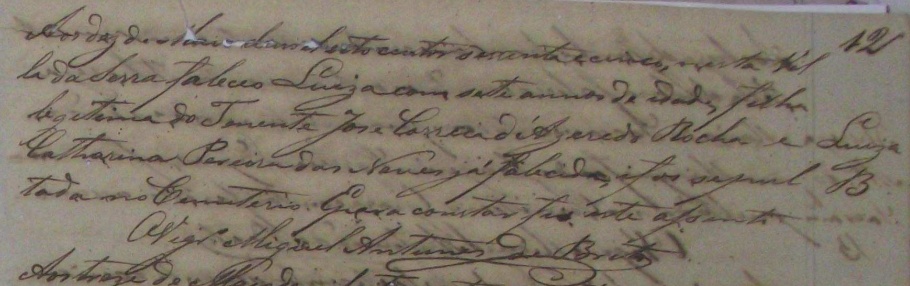 Aos dez de Maio de mil oito centos sesenta e cinco, nesta Vil
la da Serra faleceo Luiza com sete annos de idade, filha
legitima do Tenente Jose Correia d'Azeredo Rocha e
Catharina Pereira das Neves já falecida, e foi sepul
tada no Cemiterio. E para constar fis este assento
O Vigr.º Miguel Antunes de Brito
Aos treze de Maio de mil
12
Luiza
B